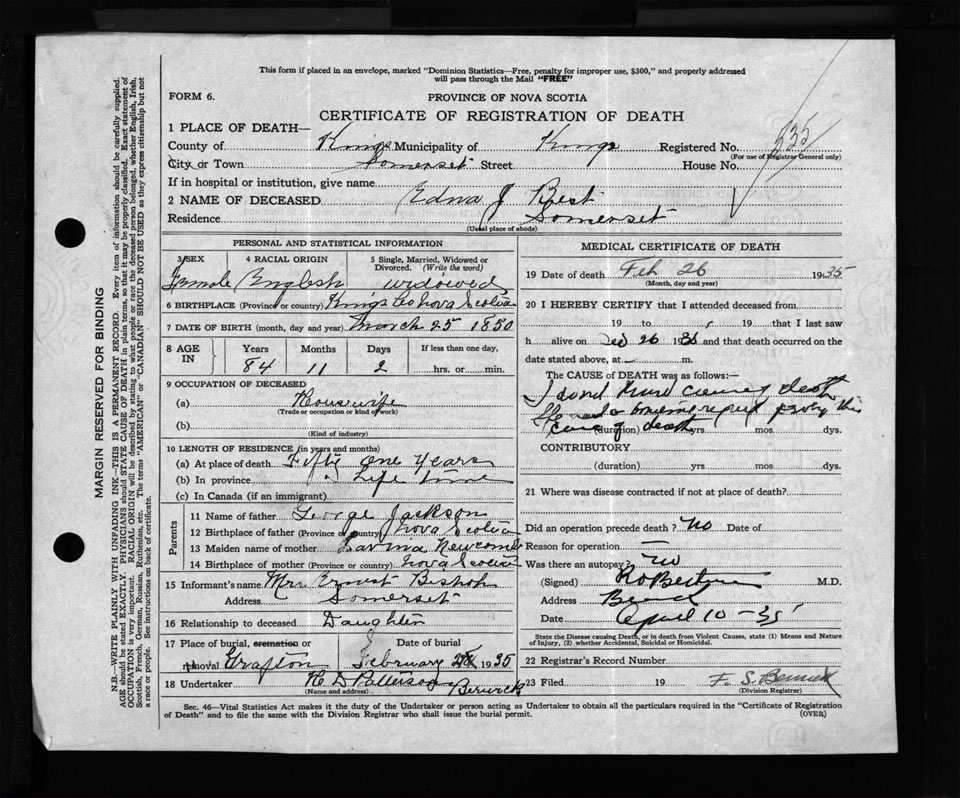 This form if placed in an envelope, marked "Dominion Statistics—Free, penalty for improper use, $300," and properly addressed
will pass through the Mail "FREE"
FORM 6.
PROVINCE OF NOVA SCOTIA
CERTIFICATE OF REGISTRATION OF DEATH
1 PLACE OF DEATH—
County of Kings Municipality of Kings Registered No. 535
(For use of Registrar General only)
City or Town Somerset Street House No.
If in hospital or institution, give name
2 NAME OF DECEASED Edna J Best
Residence Somerset
(Usual place of abode)
PERSONAL AND STATISTICAL INFORMATION
3 SEX 4 RACIAL ORIGIN 5 Single, Married, Widowed or
Divorced. (Write the word)
Female English widowed
6 BIRTHPLACE (Province or country) Kings Co Nova Scotia
7 DATE OF BIRTH (month, day and year) March 25 1850
8 AGE IN Years Months Days If less than one day,
84 11 2 hrs. or min.
9 OCCUPATION OF DECEASED
(a) Housewife
(Trade or occupation or kind of work)
(b)
(Kind of industry)
10 LENGTH OF RESIDENCE (in years and months)
(a) At place of death Fifty one Years
(b) In province Life time
(c) In Canada (if an immigrant)
Parents
11 Name of father George Jackson
12 Birthplace of father (Province or country) Nova Scotia
13 Maiden name of mother Lavinia Newcomb
14 Birthplace of mother (Province or country) Nova Scotia
15 Informant's name Mrs. Ernest Bishop
Address Somerset
16 Relationship to deceased Daughter
17 Place of burial, cremation or Date of burial
removal Grafton February 28 1935
18 Undertaker H D Patterson Berwick
(Name and address)
MEDICAL CERTIFICATE OF DEATH
19 Date of death Feb 26 1935
(Month, day and year)
20 I HEREBY CERTIFY that I attended deceased from
19 to 19 that I last saw
h alive on 26 and that death occurred on the
date stated above, at m.
The CAUSE of DEATH was as follows:—
I dont know cause of death
this
cause of death (duration) yrs mos dys.
CONTRIBUTORY
(duration) yrs mos dys.
21 Where was disease contracted if not at place of death?
Did an operation precede death? No Date of
Reason for operation —
Was there an autopsy? no
(Signed) M.D.
Address
Date April 10 – 35
State the Disease causing Death, or in death from Violent Causes, state (1) Means and Nature
of Injury, (2) whether Accidental, Suicidal or Homicidal.
22 Registrar's Record Number
23 Filed 19 F. S.
(Division Registrar)
Sec. 46—Vital Statistics Act makes it the duty of the Undertaker or person acting as Undertaker to obtain all the particulars required in the "Certificate of Registration
of Death" and to file the same with the Division Registrar who shall issue the burial permit.
(OVER)
MARGIN RESERVED FOR BINDING
N.B—WRITE PLAINLY WITH UNFADING INK—THIS IS A PERMANENT RECORD. Every item of information should be carefully supplied.
AGE should be stated EXACTLY. PHYSICIANS should STATE CAUSE OF DEATH in plain terms, so that it may be properly classified. Exact statement of
OCCUPATION is very important. RACIAL ORIGIN will be described by stating to what people or race the deceased person belonged, whether English, Irish,
Scottish, French, German, Russian, Ruthenian, etc. The terms "AMERICAN" or "CANADIAN" SHOULD NOT BE USED as they express citizenship but not
a race or people. See instructions on back of certificate.